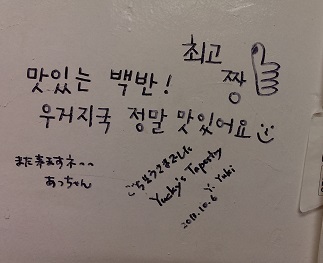 최고
짱
맛있는 백반!
우거지국 정말 맛있어요
また来ますネ〜
あっちゃん
ごちそうさまでした
Yucky's Taparty
Y. Yuki
2018.10.6